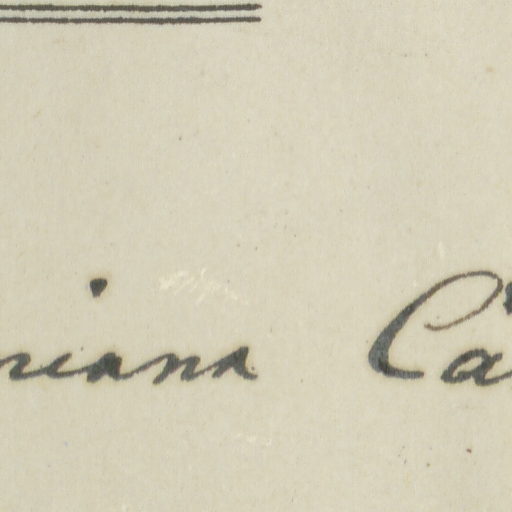 riana Ca